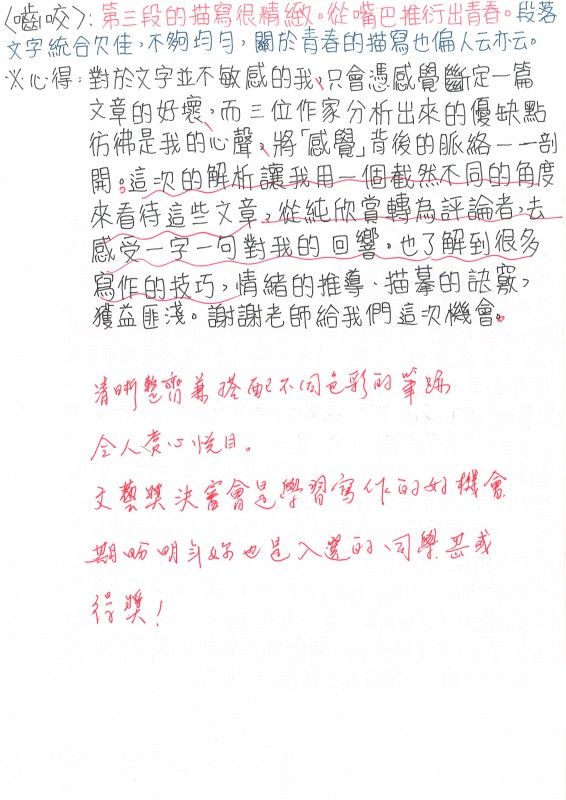 〈嚙咬〉:第三段的描寫很精緻。從嘴巴推衍出青春。段落
文字統合欠佳,不夠均勻,關於青春的描寫也偏人云亦云。
※心得:對於文字並不敏感的我,只會憑感覺斷定一篇
文章的好壞,而三位作家分析出來的優缺點
彷彿是我的心聲,將「感覺」背後的脈絡一一剖
開。這次的解析讓我用一個截然不同的角度
來看待這些文章,從純欣賞轉為評論者,去
感受一字一句對我的回響,也了解到很多
寫作的技巧,情緒的推導、描摹的訣竅,
獲益匪淺。謝謝老師給我們這次機會。
清晰整齊兼搭配不同色彩的筆跡
令人賞心悅目。
文藝獎決審會是學習寫作的好機會
期盼明年妳也是入選的同學甚或
得獎!